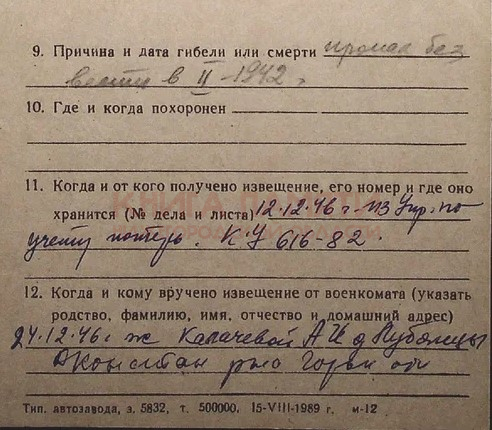 9. Причина и дата гибели или смерти пропал без
вести в II-1942 г.
10. Где и когда похоронен
11. Когда и от кого получено извещение, его номер и где оно
хранится (№ дела и листа) 12.12.46 г. из Упр. по
учету потерь. К.У 616-82.
12. Когда и кому вручено извещение от военкомата (указать
родство, фамилию, имя, отчество и домашний адрес)
24.12.46 г ж Калачевой А И д
Тип. автозавода, з. 5832, т. 500000, 15-VIII-1989 г. м-12